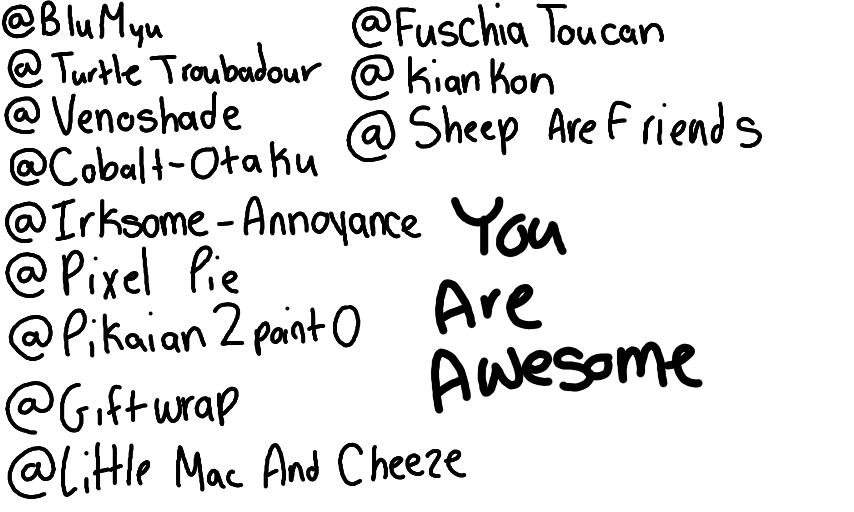 @BluMyu
@Turtle Troubadour
@Venoshade
@Cobalt-Otaku
@Irksome-Annoyance
@Pixel Pie
@Pikaian2point0
@Giftwrap
@Little Mac And Cheeze
@Fuschia Toucan
@KianKon
@Sheep AreFriends
You
Are
Awesome